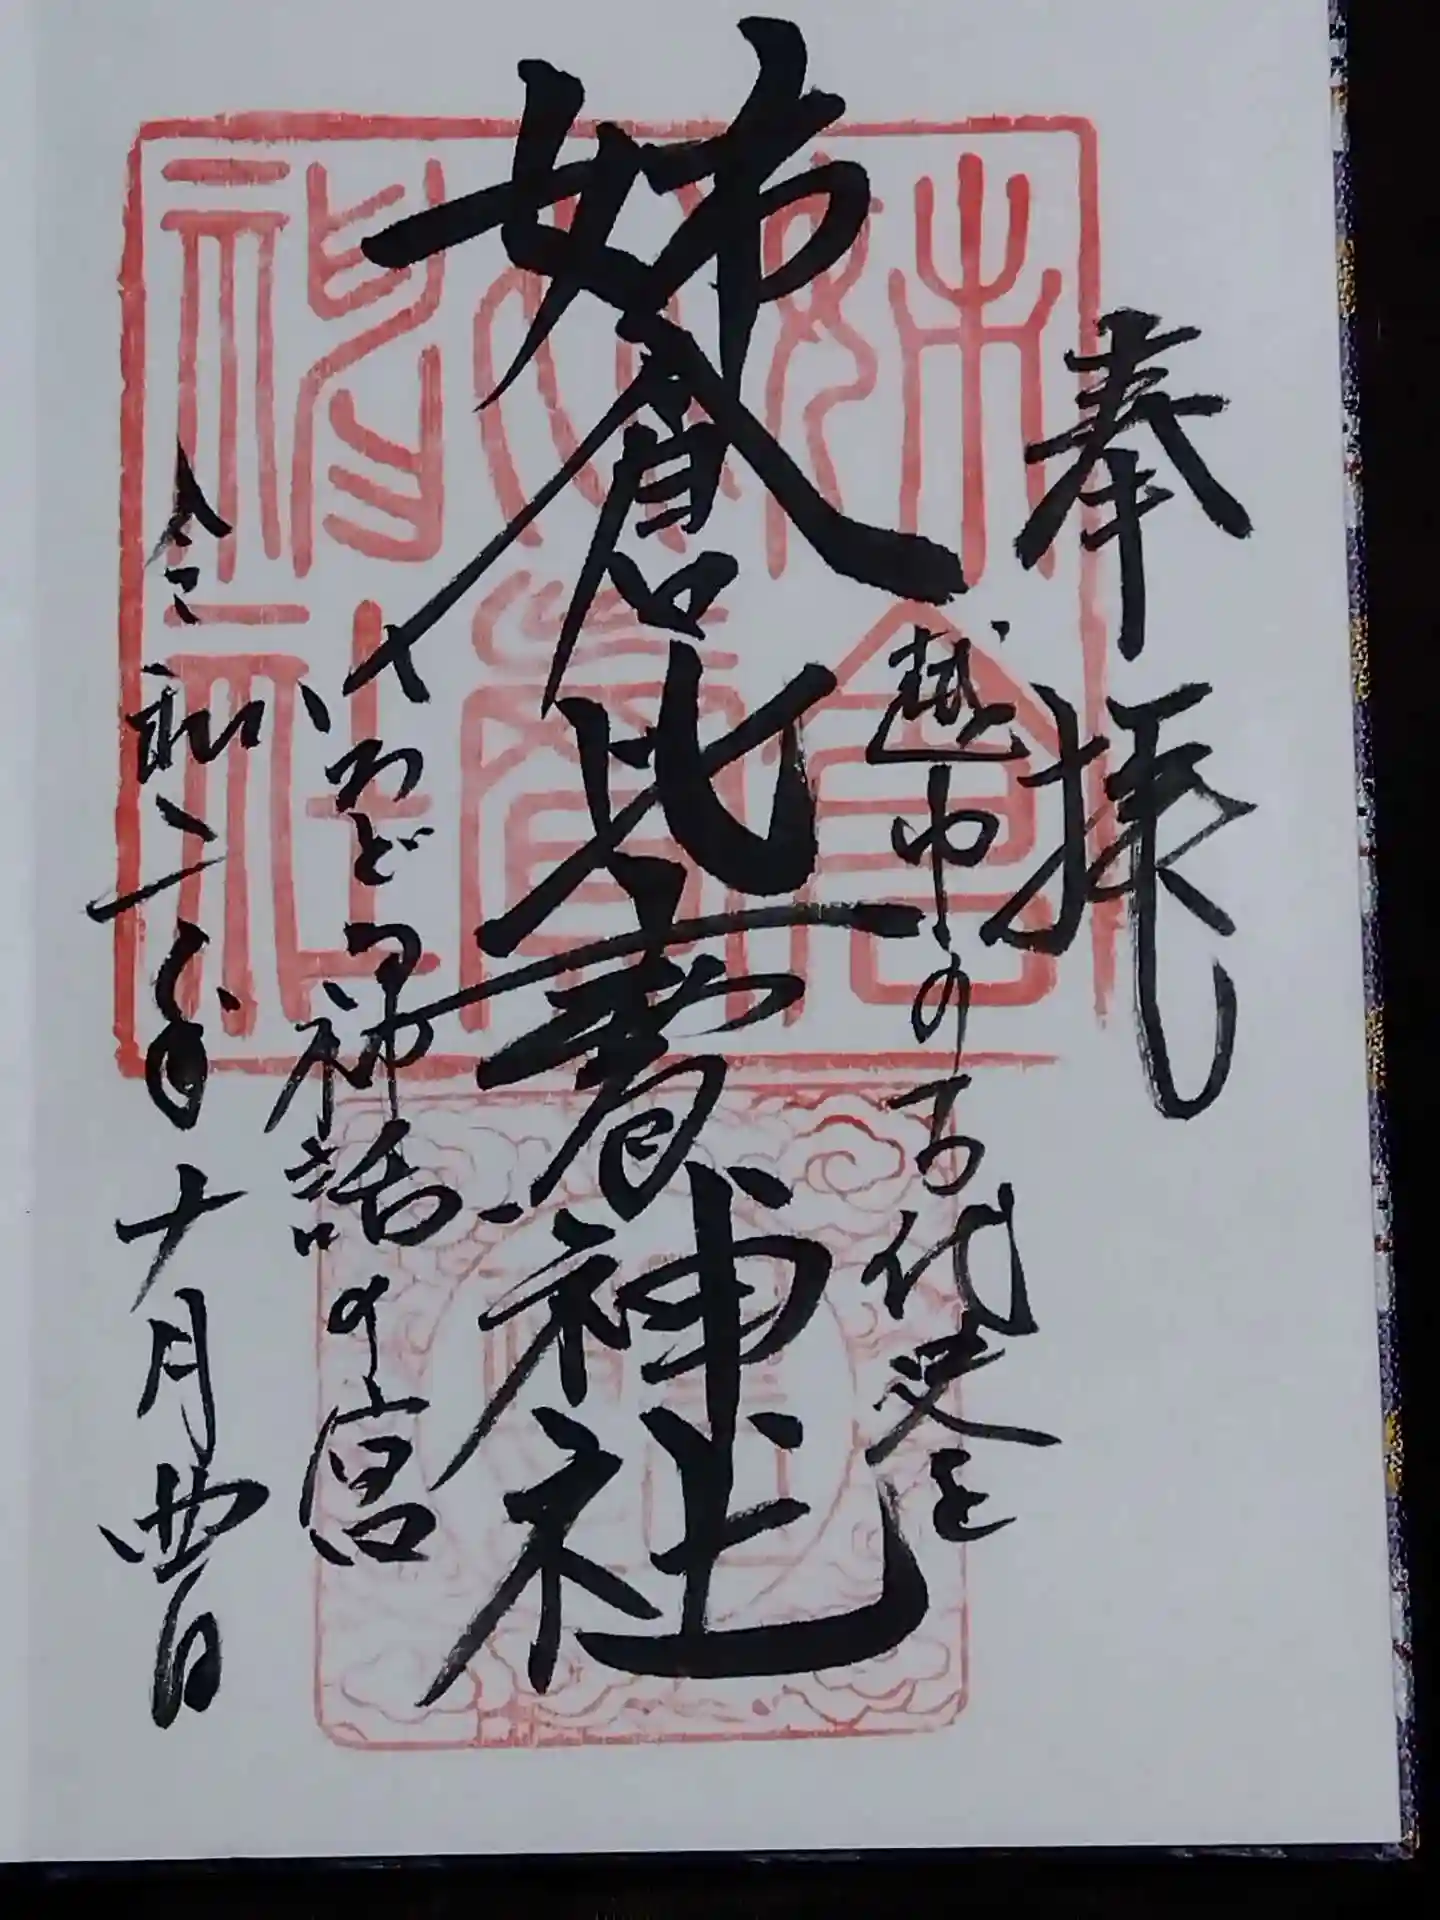 奉拝
越中の古代史を
姉倉比賣神社
いろどる神話の宮
令和二年十月四日
姉倉
比賣
神社